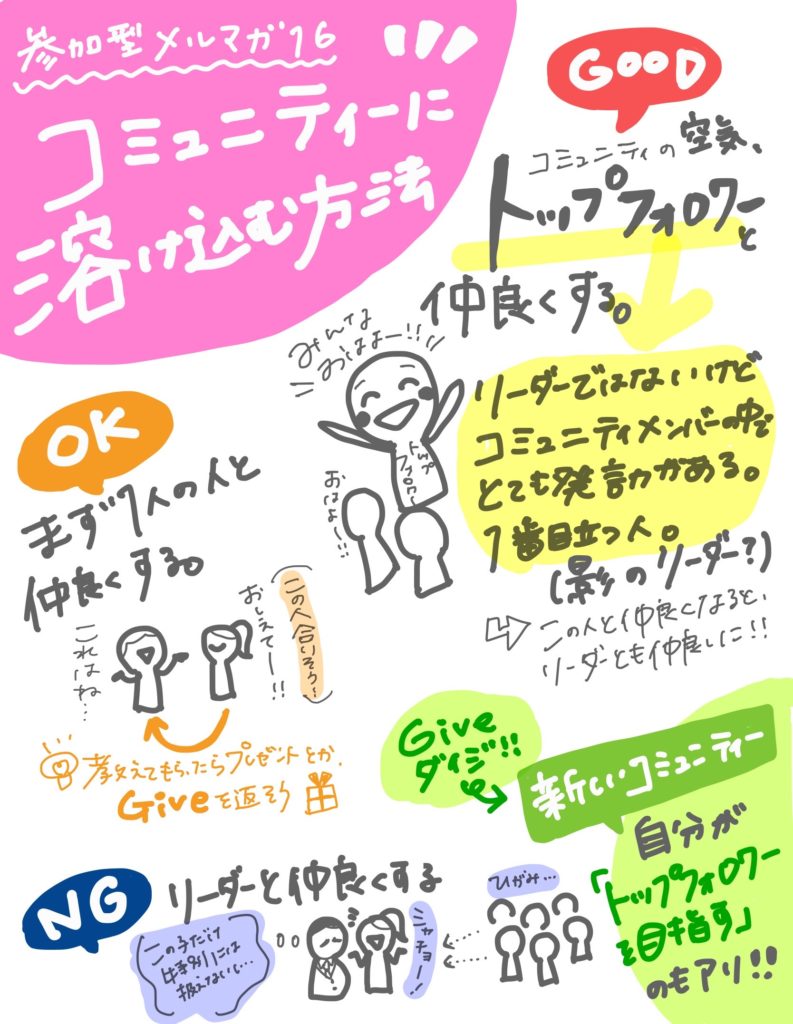 参加型メルマガ16
コミュニティーに
溶け込む方法
GOOD
コミュニティの空気、
トップフォロワーと
仲良くする。
みんな
おはよー!!
トップ
フォロワー
おはよ〜!!
リーダーではないけど
コミュニティメンバーの中で
とても発言力がある。
1番目立つ人。
(影のリーダー?)
この人と仲良くなると、
リーダーとも仲良しに!!
OK
まず1人の人と
仲良くする。
この人合いそう〜
おしえてー!!
これはね…
教えてもらったらプレゼントとか、
Giveを返そう
Give
ダイジ!!
新しいコミュニティー
自分が
「トップフォロワー
を目指す」
のもアリ!!
NG
リーダーと仲良くする
この子だけ
特別には
扱えないし…
シャチョー!
ひがみ…